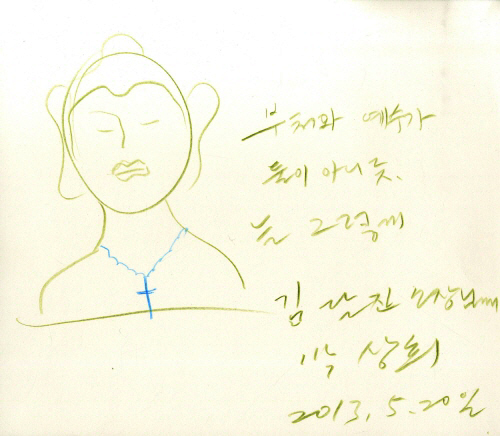 부처와 예수가
둘이 아니 듯.
늘 그렇게
김달진 소장님께
상희
2013. 5. 20일